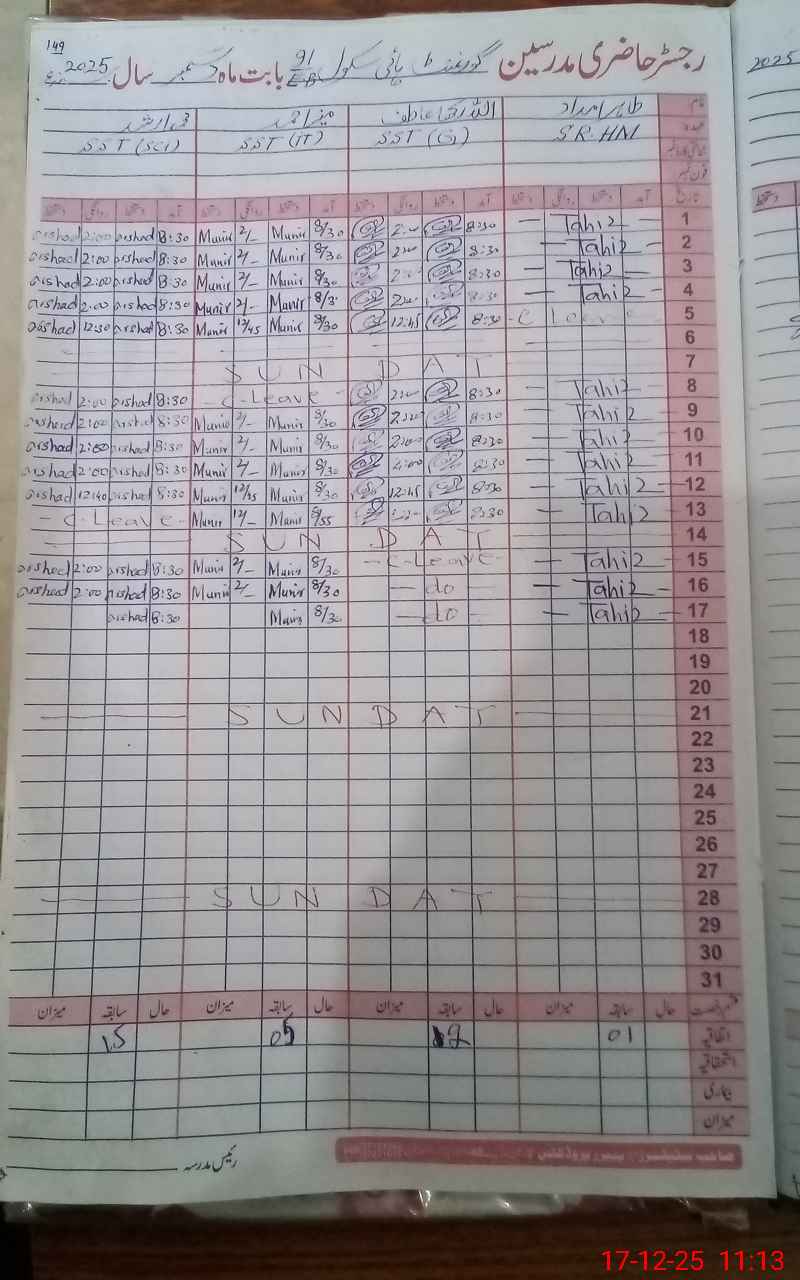 149
رجسٹر حاضری مدرسین گورنمنٹ ہائی سکول 91/EB بابت ماہ دسمبر سال 2025
2025
نام طاہر امداد منیر احمد محمد ارشد
عہدہ SR. HM SST (G) SST (IT) SST (SCI)
فون نمبر
تاریخ آمد دستخط روانگی دستخط آمد دستخط روانگی دستخط آمد دستخط روانگی دستخط آمد دستخط روانگی دستخط
1 — Tahi2 — 8:30 2:00 8/30 Munir 2/- Munir 8:30 arshad 2:00 arshad
2 — Tahi2 — 8:30 2:00 8/30 Munir 2/- Munir 8:30 arshad 2:00 arshad
3 — Tahi2 — 8:30 2:00 8/30 Munir 2/- Munir 8:30 arshad 2:00 arshad
4 — Tahi2 — 8:30 2:00 8/30 Munir 2/- Munir 8:30 arshad 2:00 arshad
5 - C Leave 8:30 12:45 8/30 Munir 12/45 Munir 8:30 arshad 12:30 arshad
6
7 SUN DAT
8 — Tahi2 — 8:30 2:00 - C-Leave - 8:30 arshad 2:00 arshad
9 — Tahi2 — 8:30 2:00 8/30 Munir 2/- Munir 8:30 arshad 2:00 arshad
10 — Tahi2 — 8:30 2:00 8/30 Munir 2/- Munir 8:30 arshad 2:00 arshad
11 — Tahi2 — 8:30 2:00 8/30 Munir 2/- Munir 8:30 arshad 2:00 arshad
12 — Tahi2 — 8:30 12:45 8/30 Munir 12/35 Munir 8:30 arshad 12:40 arshad
13 — Tahi2 8:30 8/55 Munir 12/- Munir - C-Leave -
14 SUN DAT
15 — Tahi2 — - C-Leave - 8/30 Munir 2/- Munir 8:30 arshad 2:00 arshad
16 — Tahi2 — — do — 8/30 Munir 2/- Munir 8:30 arshad 2:00 arshad
17 — Tahi2 — — do — 8/30 Munir 8:30 arshad
18
19
20
21 SUN DAT
22
23
24
25
26
27
28 SUN DAT
29
30
31
قسم رخصت حال سابقہ میزان حال سابقہ میزان حال سابقہ میزان حال سابقہ میزان
اتفاقیہ 01 12 05 15
استحقاقیہ
بیماری
میزان
رئیس مدرسہ
17-12-25 11:13